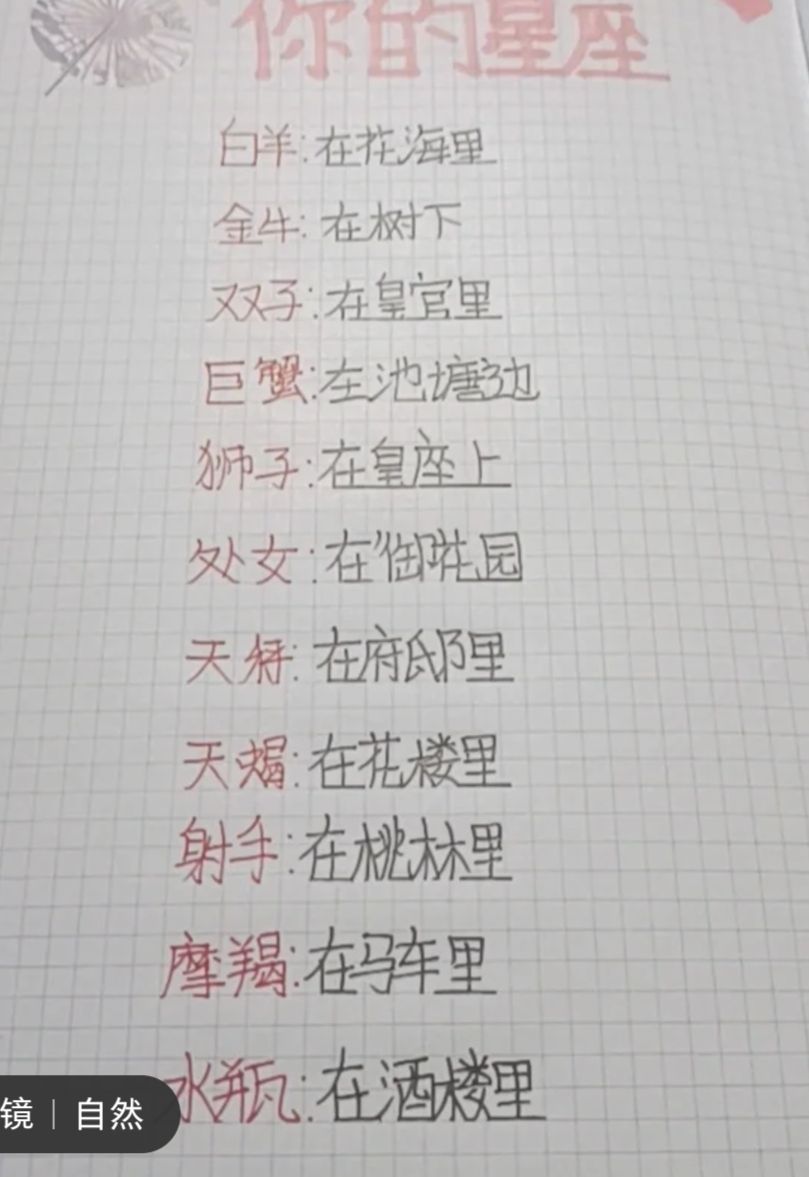 你的星座
白羊:在花海里
金牛:在树下
双子:在皇宫里
巨蟹:在池塘边
狮子:在皇座上
处女:在御花园
天秤:在府邸里
天蝎:在花楼里
射手:在桃林里
摩羯:在马车里
水瓶:在酒楼里
镜|自然